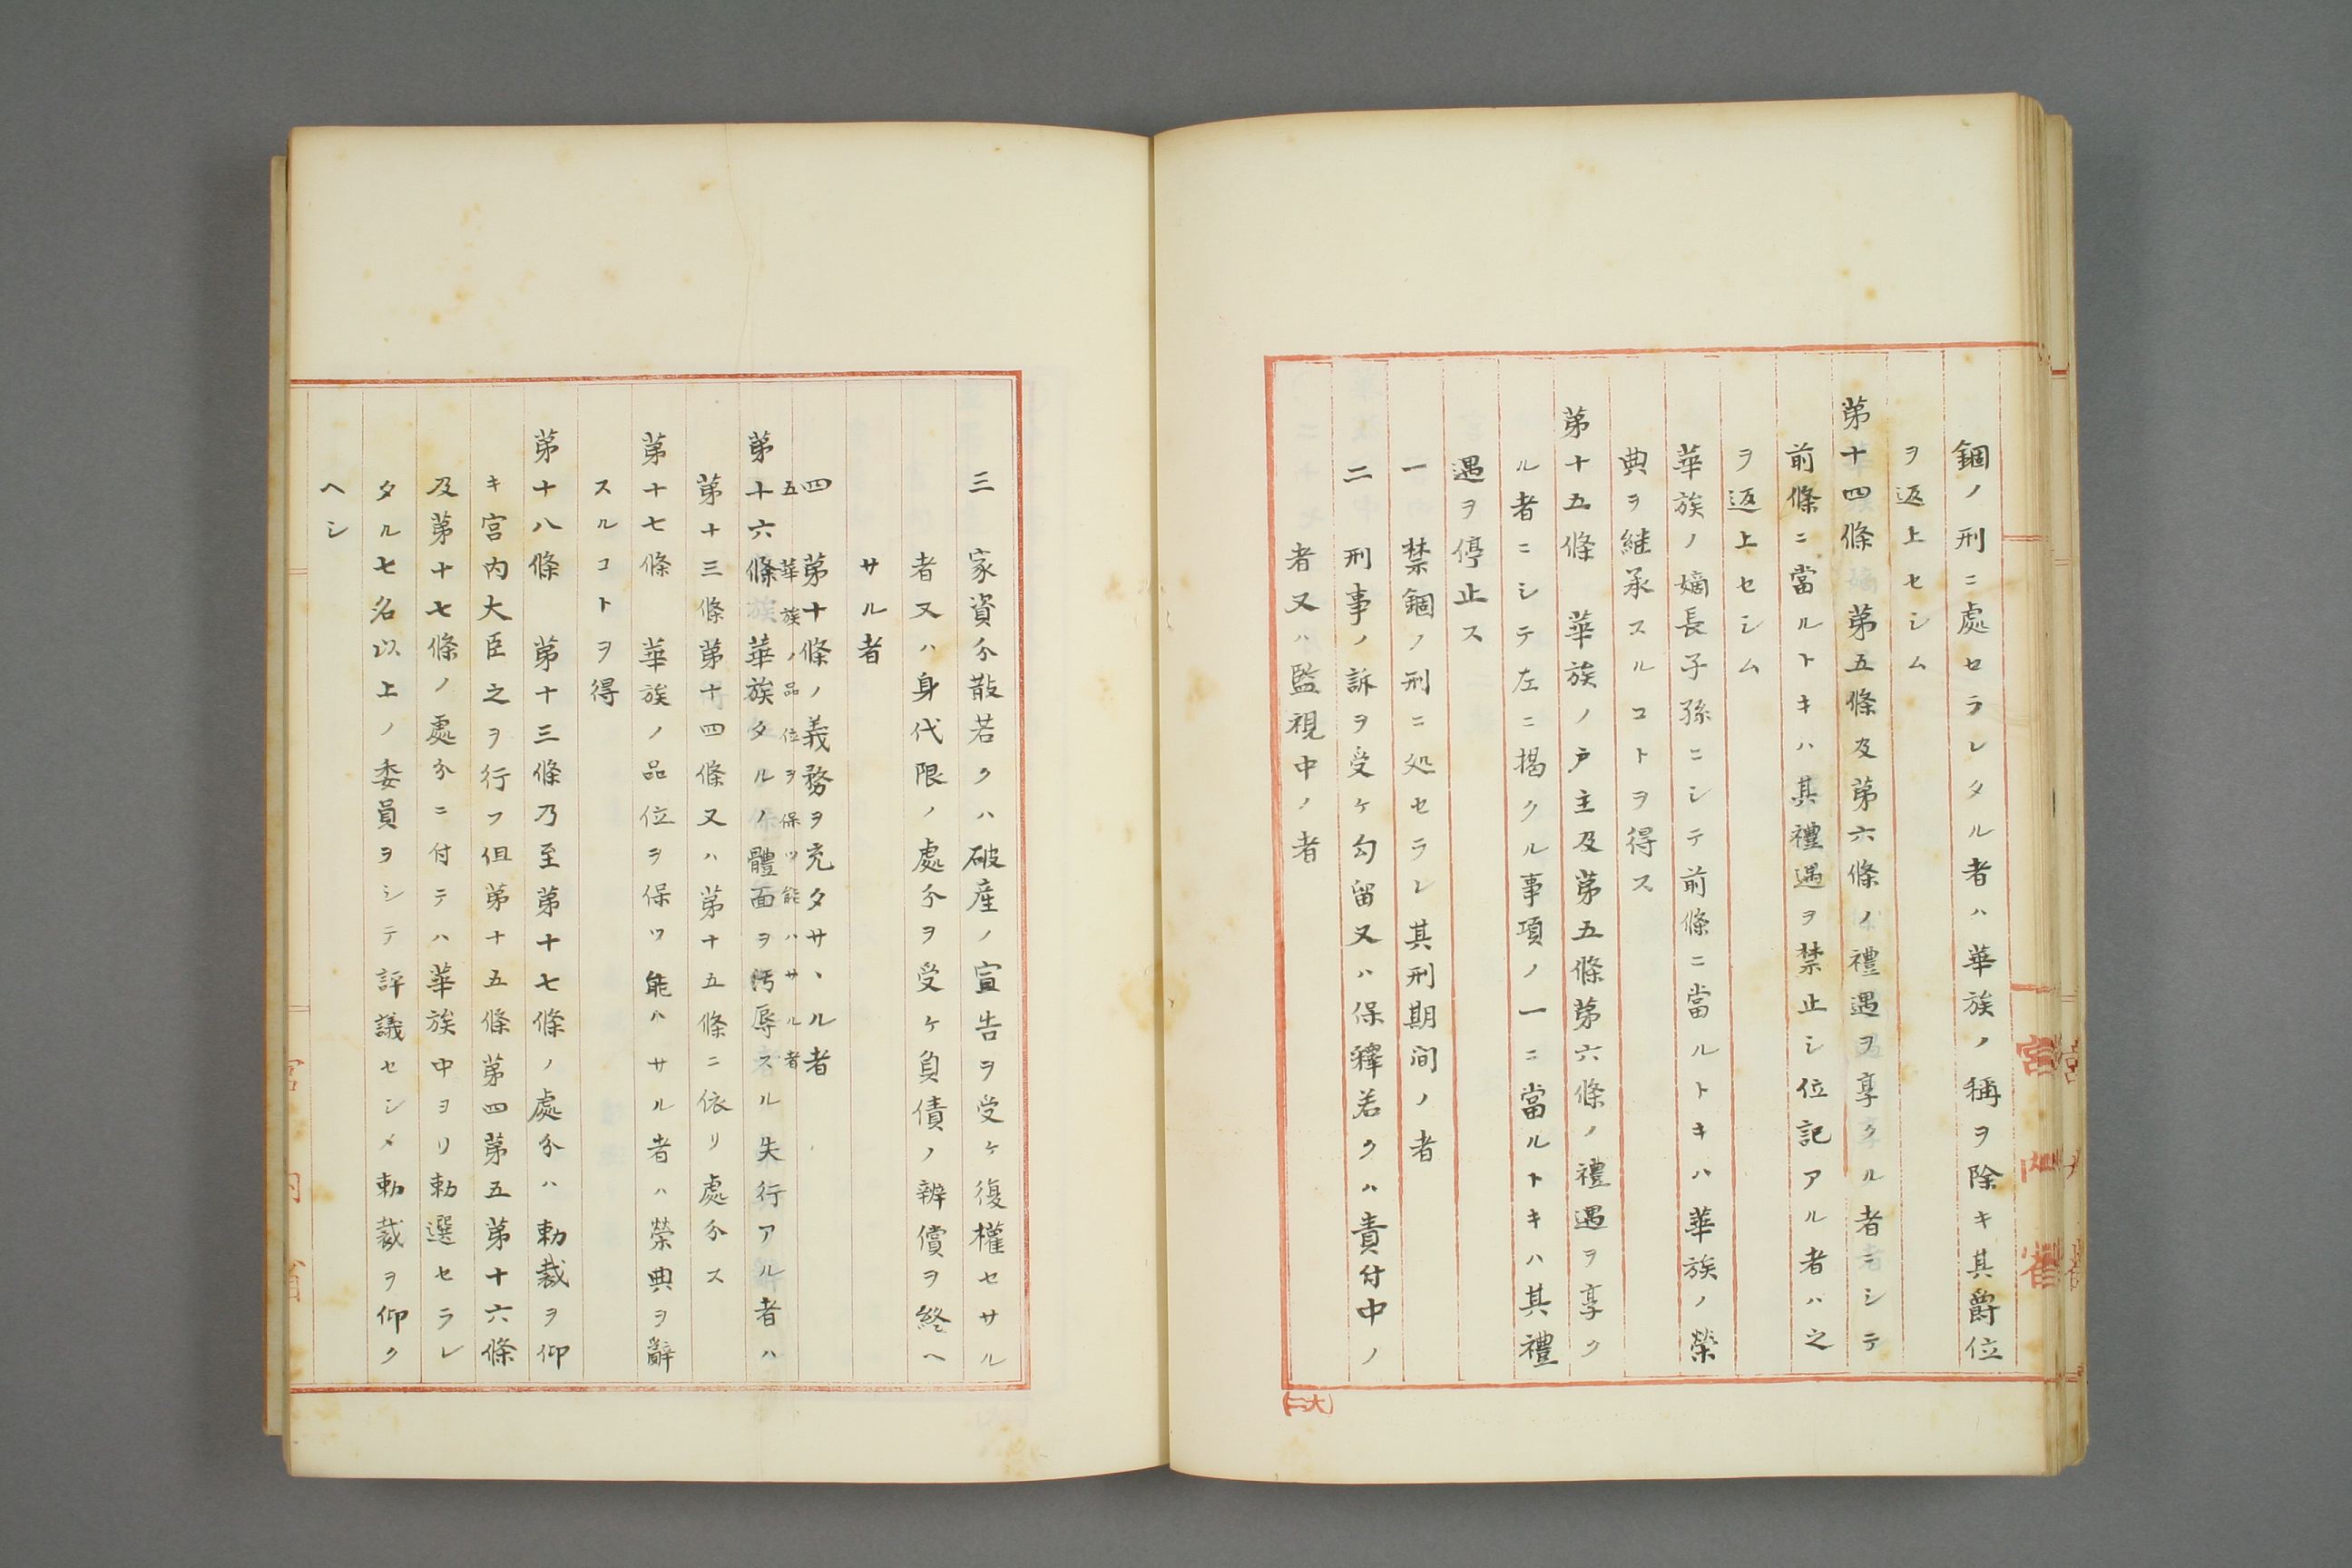 錮ノ刑ニ處セラレタル者ハ華族ノ稱ヲ除キ其爵位
ヲ返上セシム
第十四條　第五條及第六條ノ禮遇ヲ享クル者ニシテ
前條ニ當ルトキハ其禮遇ヲ禁止シ位記アル者ハ之
ヲ返上セシム
華族ノ嫡長子孫ニシテ前條ニ當ルトキハ華族ノ榮
典ヲ継承スルコトヲ得ス
第十五條　華族ノ戸主及第五條第六條ノ禮遇ヲ享ク
ル者ニシテ左ニ揭クル事項ノ一ニ當ルトキハ其禮
遇ヲ停止ス
一　禁錮ノ刑ニ処セラレ其刑期间ノ者
二　刑事ノ訴ヲ受ケ勾留又ハ保釋若クハ責付中ノ
者又ハ監視中ノ者
宮内省
(大二)
三　家資分散若クハ破產ノ宣告ヲ受ケ復權セサル
者又ハ身代限ノ處分ヲ受ケ負債ノ辨償ヲ終ヘ
サル者
四　第十條ノ義務ヲ充タサヽル者
五　華族ノ品位ヲ保ツ能ハサル者
第十六條　華族タルノ體面ヲ汚辱スル失行アル者ハ
第十三條第十四條又ハ第十五條ニ依リ處分ス
第十七條　華族ノ品位ヲ保ツ能ハサル者ハ榮典ヲ辭
スルコトヲ得
第十八條　第十三條乃至第十七條ノ處分ハ勅裁ヲ仰
キ宮内大臣之ヲ行フ但第十五條第四第五第十六條
及第十七條ノ處分ニ付テハ華族中ヨリ勅選セラレ
タル七名以上ノ委員ヲシテ評議セシメ勅裁ヲ仰ク
ヘシ
宮内省